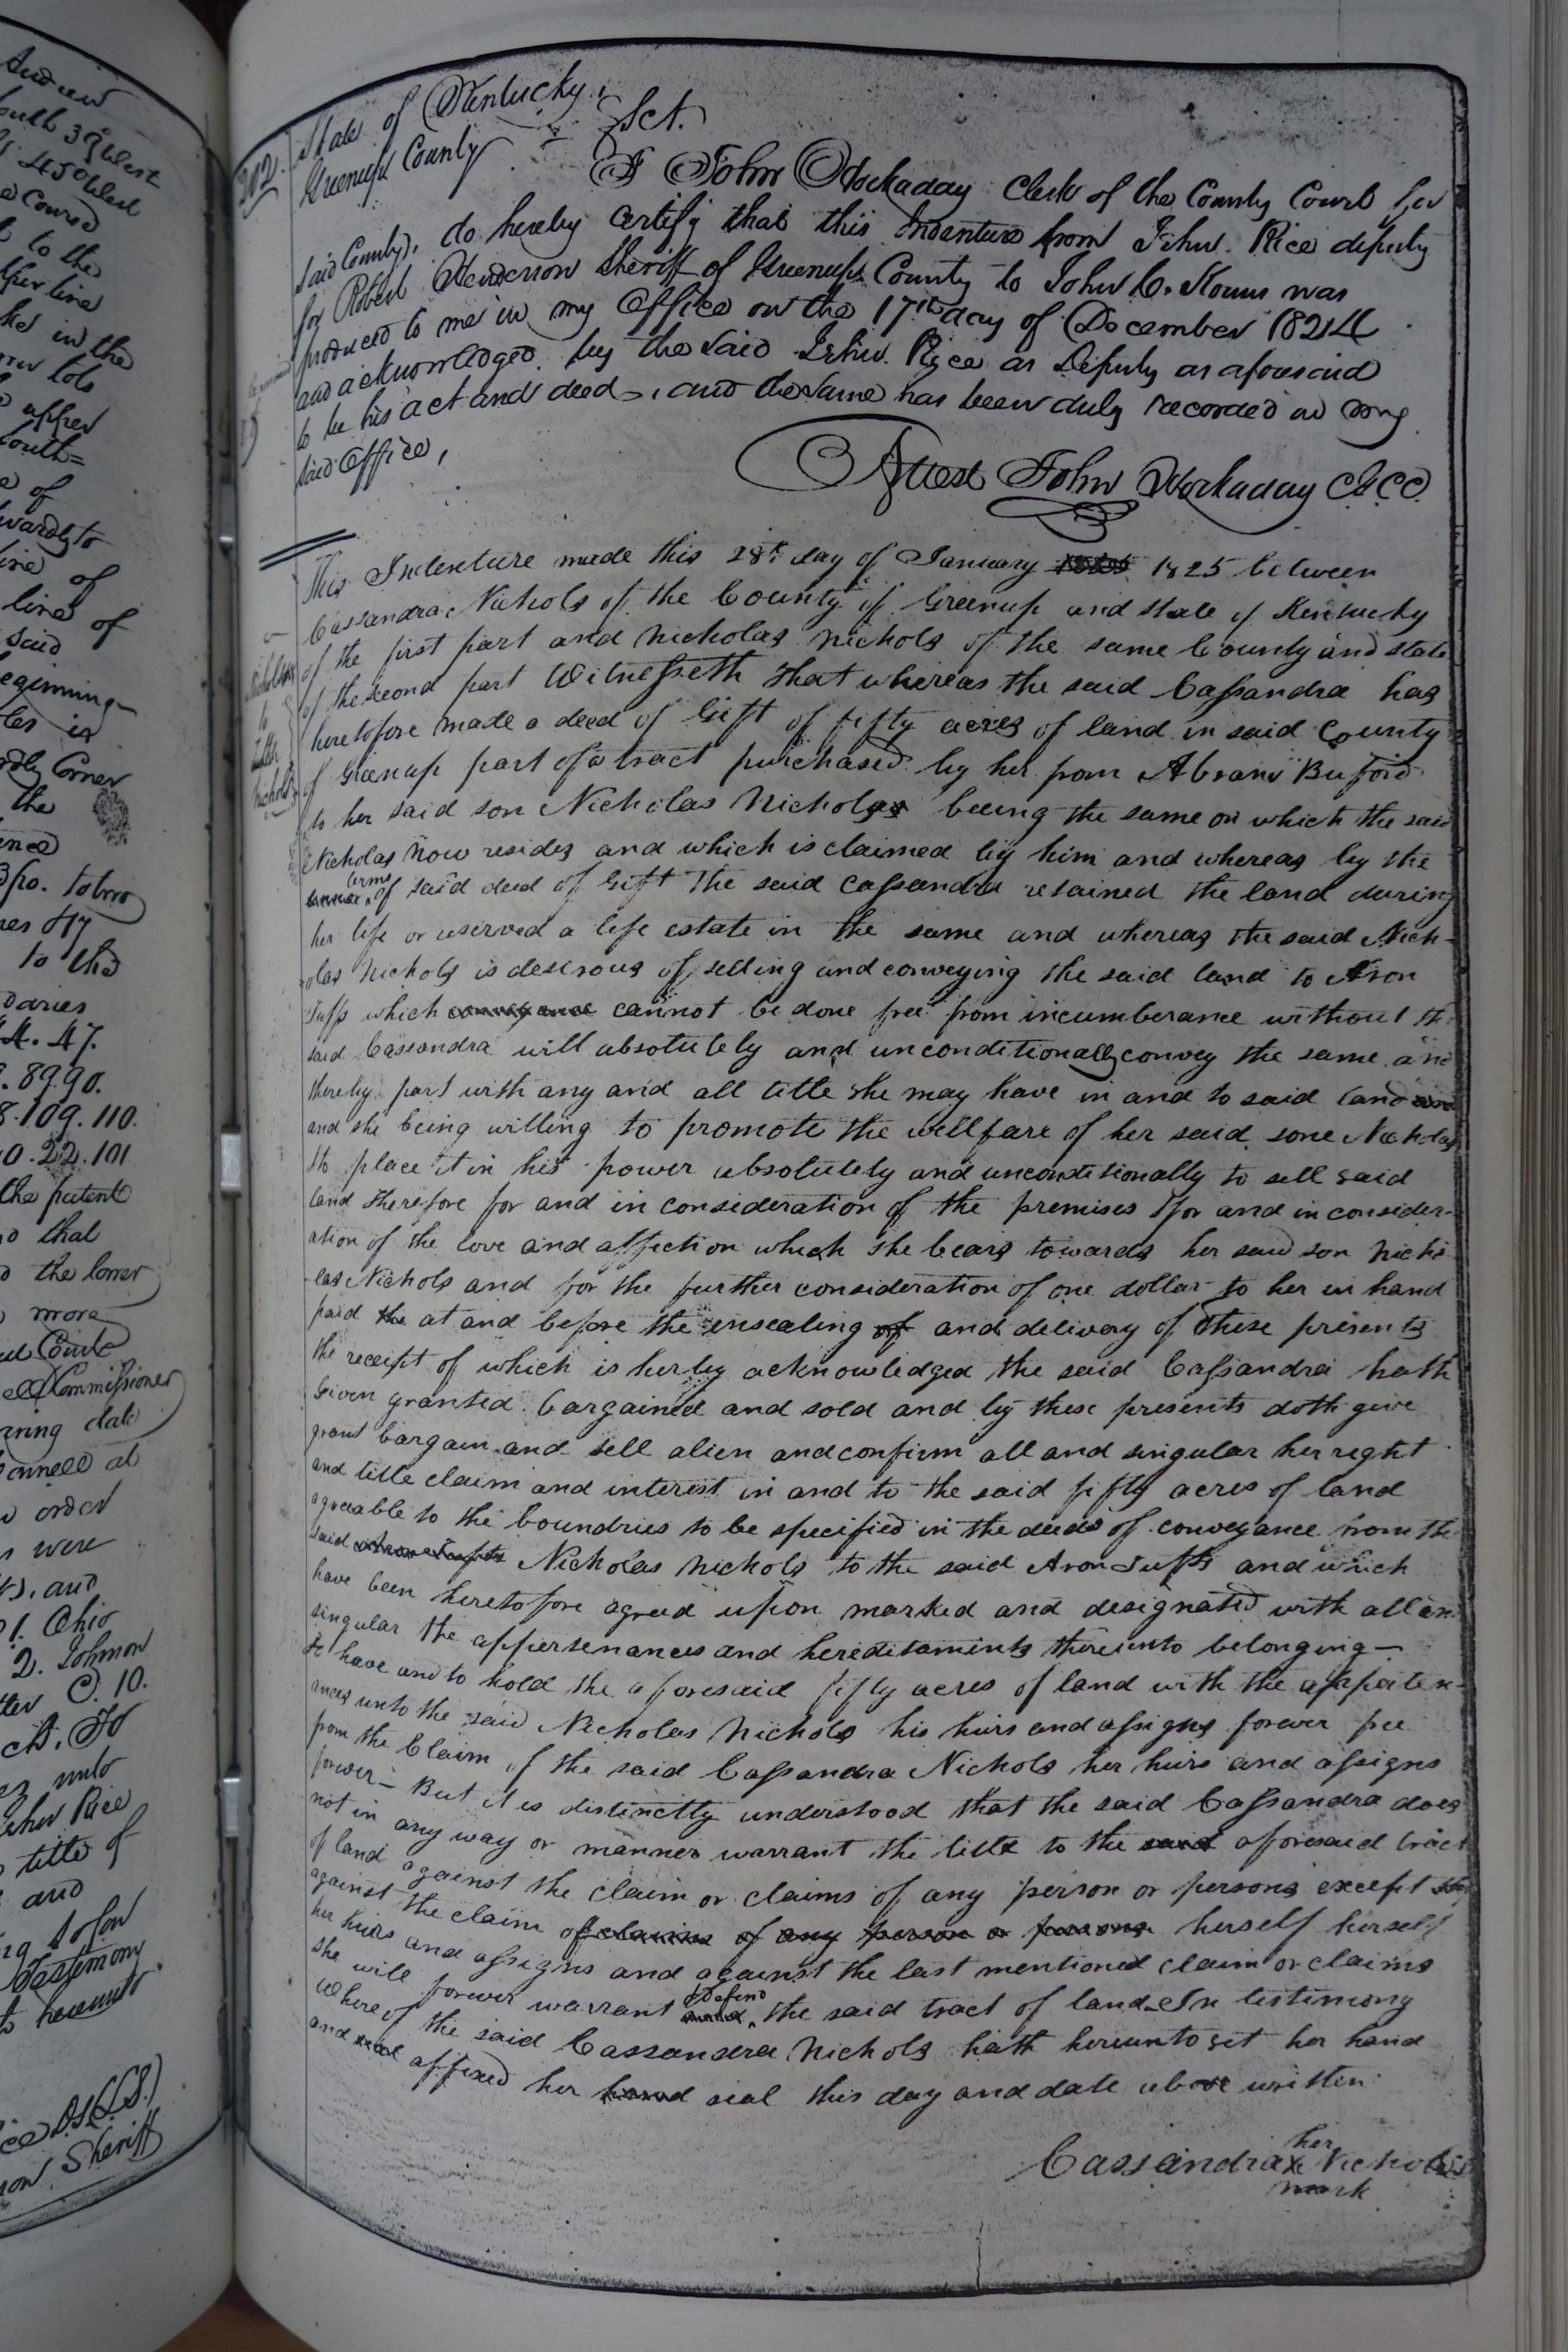 Andrew
South 39 West
450 West
Course
to the
upper line
in the
lots
upper
South=
of
wards to
line of
line of
said
beginning
is
Corner
the
3 po. to two
to the
daries
44. 47.
89.90.
8.109.110.
0.22.101
the patent
that
the lower
more
Commissioner
bearing date
order
were
and
1. Ohio
2. Johnson
O. 10.
unto
John Rice
title of
and
Testimony
hereunto
D.S. (L.S.)
Sheriff
202.
State of Kentucky,
Greenup County } Sct.
I John Hockaday Clerk of the County Court for
said County, do hereby certify that this Indenture from John Rice deputy
for Robert Henderson Sheriff of Greenup County to John C. Kouns was
produced to me in my Office on the 17th day of December 1824
and acknowledged by the said John Rice as Deputy as aforesaid
to be his act and deed, and the same has been duly recorded in my
said Office,
Attest John Hockaday C.G.C.C.
Nichols
to
Nichols
This Indenture made this 28th day of January 1825 between
Cassandra Nichols of the County of Greenup and state of Kentucky
of the first part and Nicholas Nichols of the same County and state
of the second part Witnesseth that whereas the said Cassandra has
heretofore made a deed of Gift of fifty acres of land in said County
of Greenup part of a tract purchased by her from Abram Buford
to her said son Nicholas Nichols being the same on which the said
Nicholas now resides and which is claimed by him and whereas by the
terms of said deed of Gift the said Cassandra retained the land during
her life or reserved a life estate in the same and whereas the said Nich-
olas Nichols is desirous of selling and conveying the said land to Aron
Tufts which conveyance cannot be done free from incumberance without the
said Cassandra will absolutely and unconditionally convey the same and
thereby part with any and all title she may have in and to said land
and she being willing to promote the wellfare of her said sone Nicholas
to place it in his power absolutely and unconditionally to sell said
land therefore for and in consideration of the premises & for and in consider-
ation of the love and affection which she bears towards her said son Nicho
las Nichols and for the further consideration of one dollar to her in hand
paid the at and before the ensealing of and delivery of these presents
the receipt of which is herby acknowledged the said Cassandra hath
Given granted bargained and sold and by these presents doth give
grant bargain and sell alien and confirm all and singular her right
and title claim and interest in and to the said fifty acres of land
agreeable to the boundries to be specified in the deed of conveyance from the
said Nicholas Nichols to the said Aron Tufts and which
have been heretofore agreed upon marked and designated with all an
singular the appertenances and hereditaments thereunto belonging—
To have and to hold the aforesaid fifty acres of land with the apperten-
ances unto the said Nicholas Nichols his heirs and assigns forever free
from the Claim of the said Cassandra Nichols her heirs and assigns
forever— But it is distinctly understood that the said Cassandra does
not in any way or manner warrant the title to the said aforesaid tract
of land against the claim or claims of any person or persons except
against the claim of claims of any person or persons herself herself
her heirs and assigns and against the last mentioned claim or claims
she will forever warrant & Defend the said tract of land In testimony
Whereof the said Cassandra Nichols hath hereunto set her hand
and seal affixed her hand seal this day and date above written
her
Cassandra X Nichols
mark